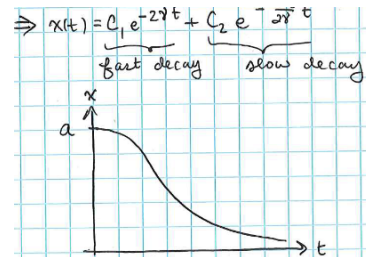 ⇒ x(t) = C₁ e^(-2γt) + C₂ e^(- 2γ t)
fast decay slow decay
x
a
t